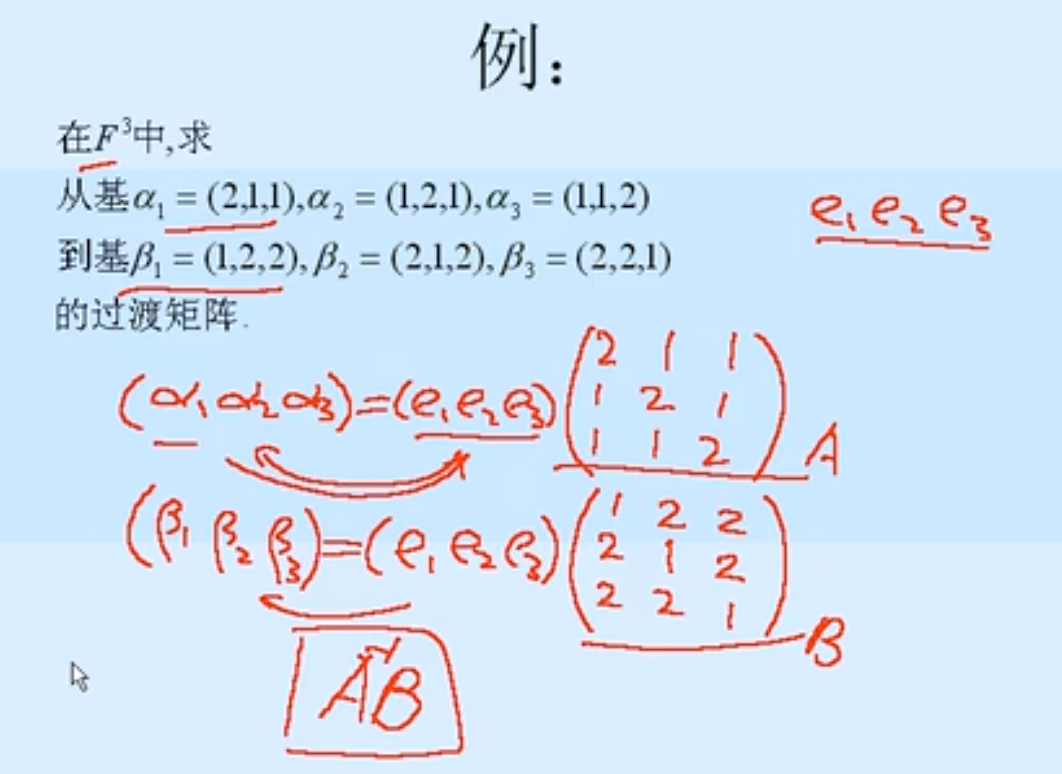 例：
在F³中,求
从基α₁ = (2,1,1),α₂ = (1,2,1),α₃ = (1,1,2)
到基β₁ = (1,2,2),β₂ = (2,1,2),β₃ = (2,2,1)
的过渡矩阵.
e₁ e₂ e₃
(α₁ α₂ α₃)=(e₁ e₂ e₃)
2 1 1
1 2 1
1 1 2
A
(β₁ β₂ β₃)=(e₁ e₂ e₃)
1 2 2
2 1 2
2 2 1
B
A⁻¹B